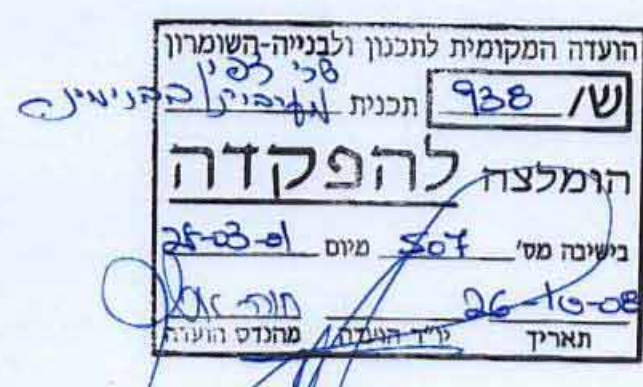 הועדה המקומית לתכנון ולבנייה-השומרון
ש/ 938 תכנית
הומלצה להפקדה
בישיבה מס' 507 מיום 25-03-01
26-10-08
תאריך יו"ר הועדה מהנדס הועדה